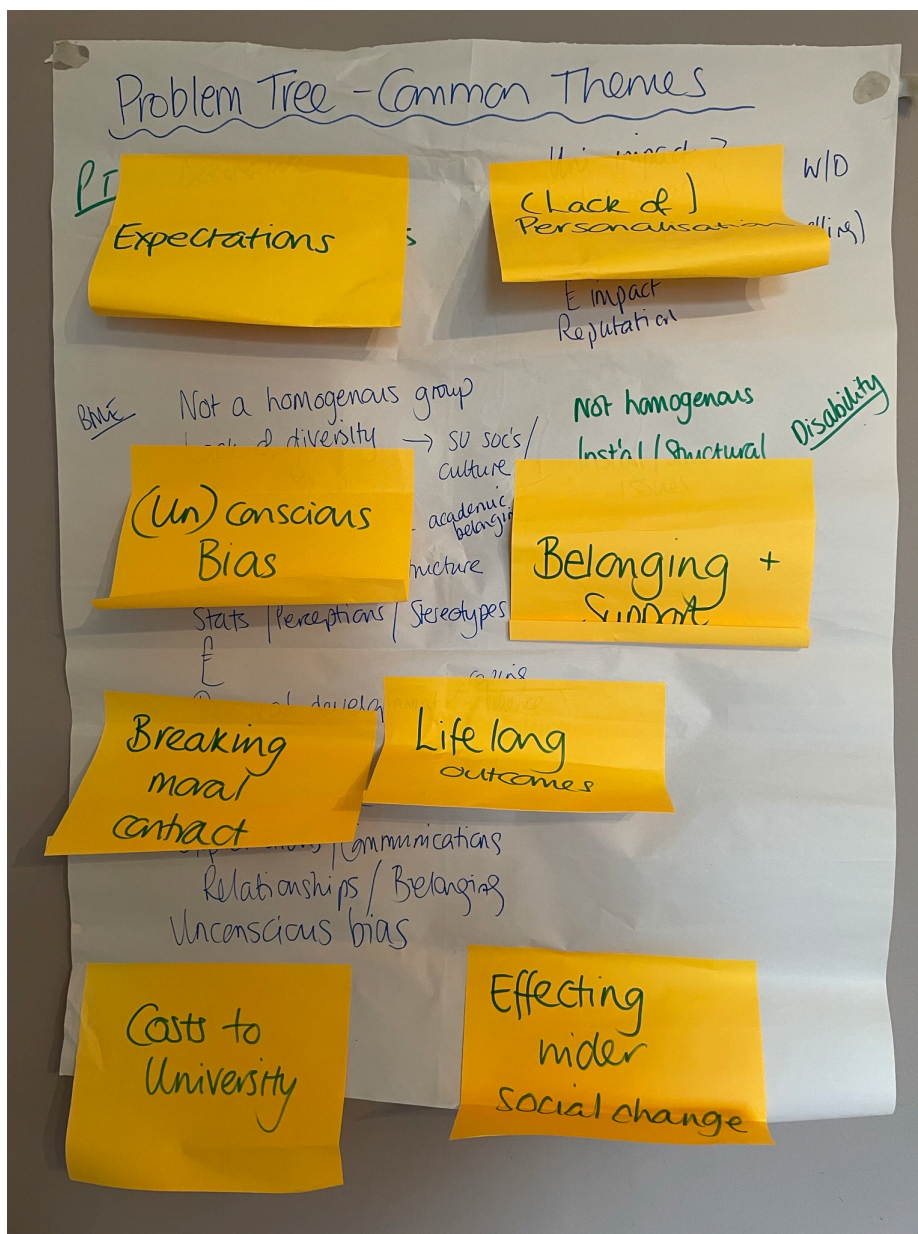 Problem Tree - Common Themes
PT
Expectations
(Lack of)
Personalisation
W/O
£ impact
Reputation
BME
Not a homogenous group
diversity → SU soc's/
culture
academic
Not homogenous
Inst'al/Structural
Disability
(Un)conscious
Bias
Belonging +
Support
Stats/Perceptions/Stereotypes
£
Breaking
moral
contract
Life long
outcomes
/Communications
Relationships/Belonging
Unconscious bias
Costs to
University
Effecting
wider
social change